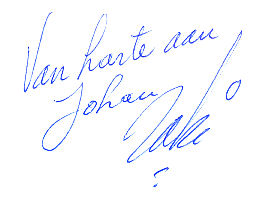 Van harte aan
Johan